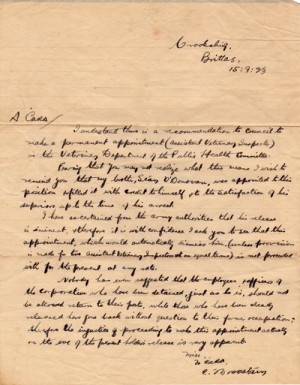 Brittas.
15.9.23
A Cara/
I understand there is a recommendation to Council to
make a permanent appointment (Assistant Veterinary Inspector)
in the Veterinary Department of the Public Health Committee.
Fearing that you may not realize what this means I wish to
remind you that my brother, O'Donovan, was appointed to this
position & filled it with credit to himself & to the satisfaction of his
superiors up to the time of his arrest.
I have ascertained from the army authorities that his release
is imminent, therefore it is with confidence I ask you to see that this
appointment, which would automatically dismiss him, (unless provision
is made for two Assistant Veterinary Inspectors) is not proceeded
with for the present at any rate.
Nobody has ever suggested that the employees & officers of
the Corporation who have been detained, just as he is, should not
be allowed return to their posts, while those who have been already
released have gone back without question to their former occupation.
Therefore the injustice of proceeding to make this appointment actually
on the eve of the present holder's release is very apparent.
Mise